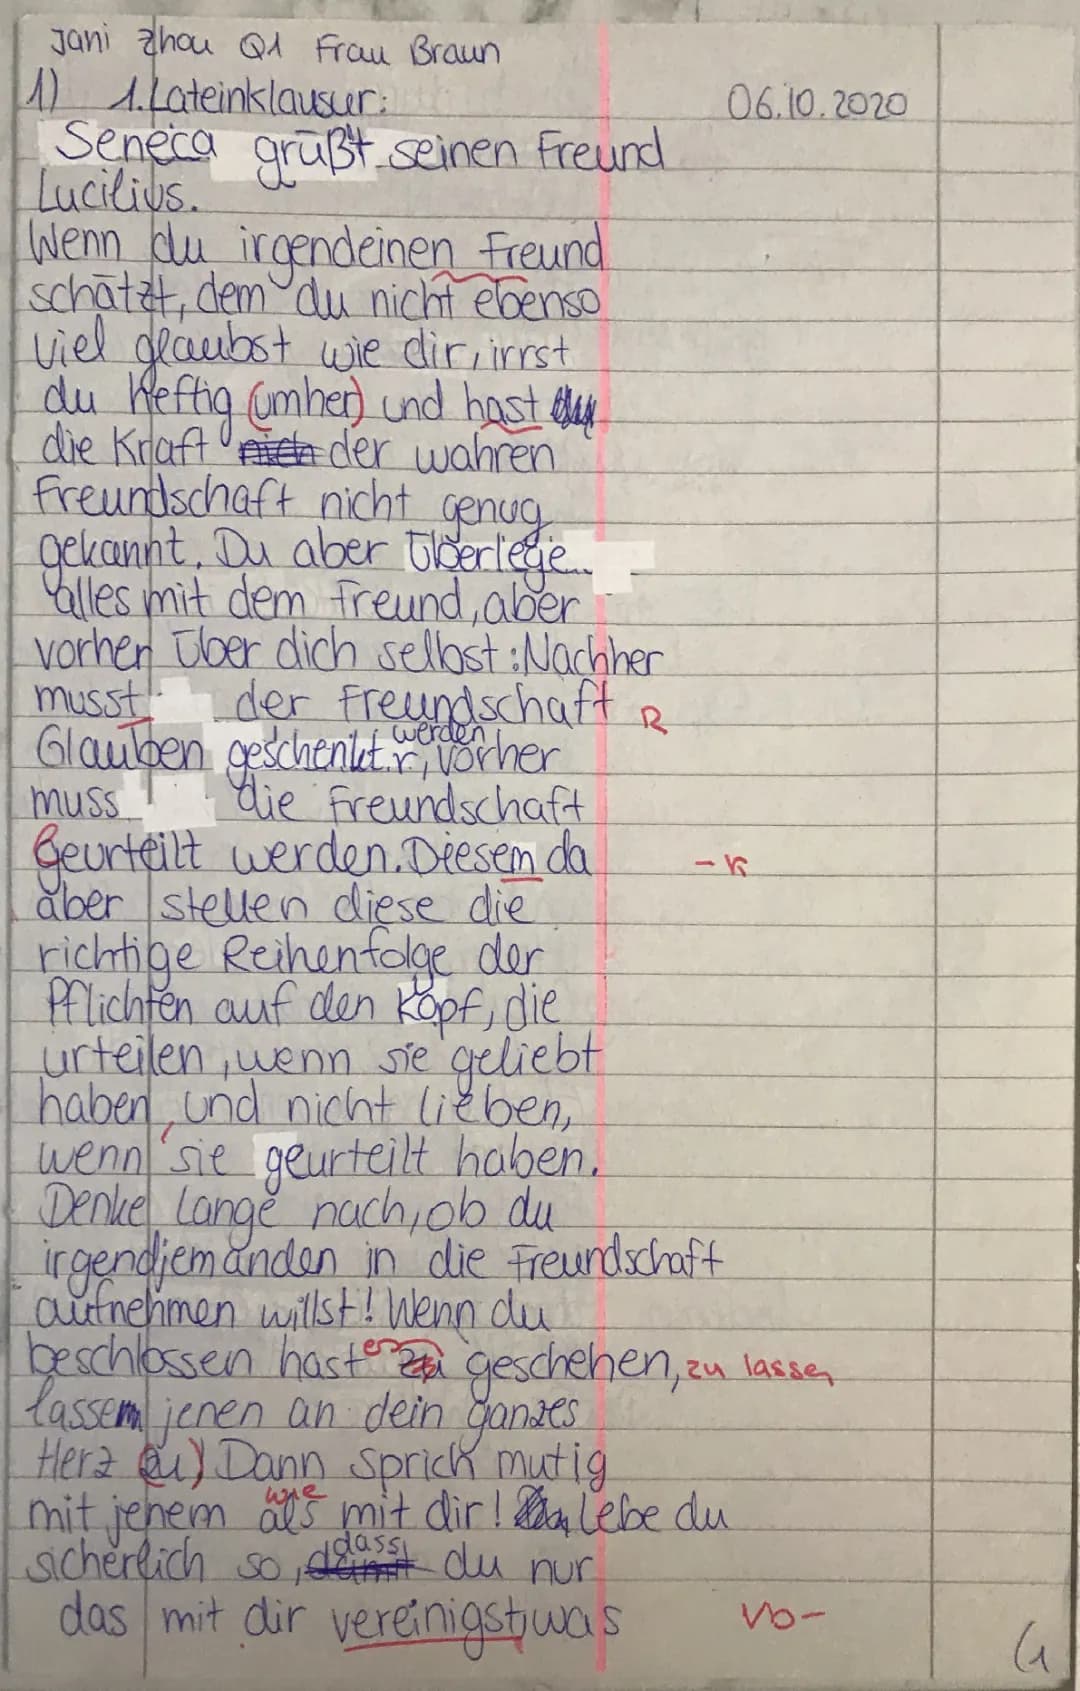 Jani Zhou Q1 Frau Braun
1) 1. Lateinklausur: 06.10.2020
Seneca grüßt seinen Freund
Lucilius.
Wenn du irgendeinen Freund
schätzt, dem du nicht ebenso
viel glaubst wie dir, irrst
du heftig (umher) und hast
die Kraft nich der wahren
Freundschaft nicht genug
gekannt. Du aber überlege
alles mit dem Freund, aber
vorher über dich selbst: Nachher
musst der Freundschaft R
werden
Glauben geschenkt, vorher
muss die Freundschaft
geurteilt werden. Diesem da - K
aber stellen diese die
richtige Reihenfolge der
Pflichten auf den Kopf, die
urteilen, wenn sie geliebt
haben, und nicht lieben,
wenn sie geurteilt haben.
Denke lange nach, ob du
irgendjemanden in die Freundschaft
aufnehmen willst! Wenn du
beschlossen hast es zu geschehen, zu lassen
lassen jenen an dein ganzes
Herz (zu) Dann sprich mutig
wie
mit jenem als mit dir! lebe du
dass
sicherlich so, damit du nur
das mit dir vereinigst, was Vb-
1